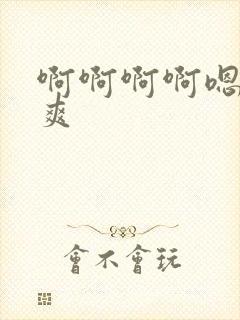 啊啊啊啊嗯
爽
會不會玩